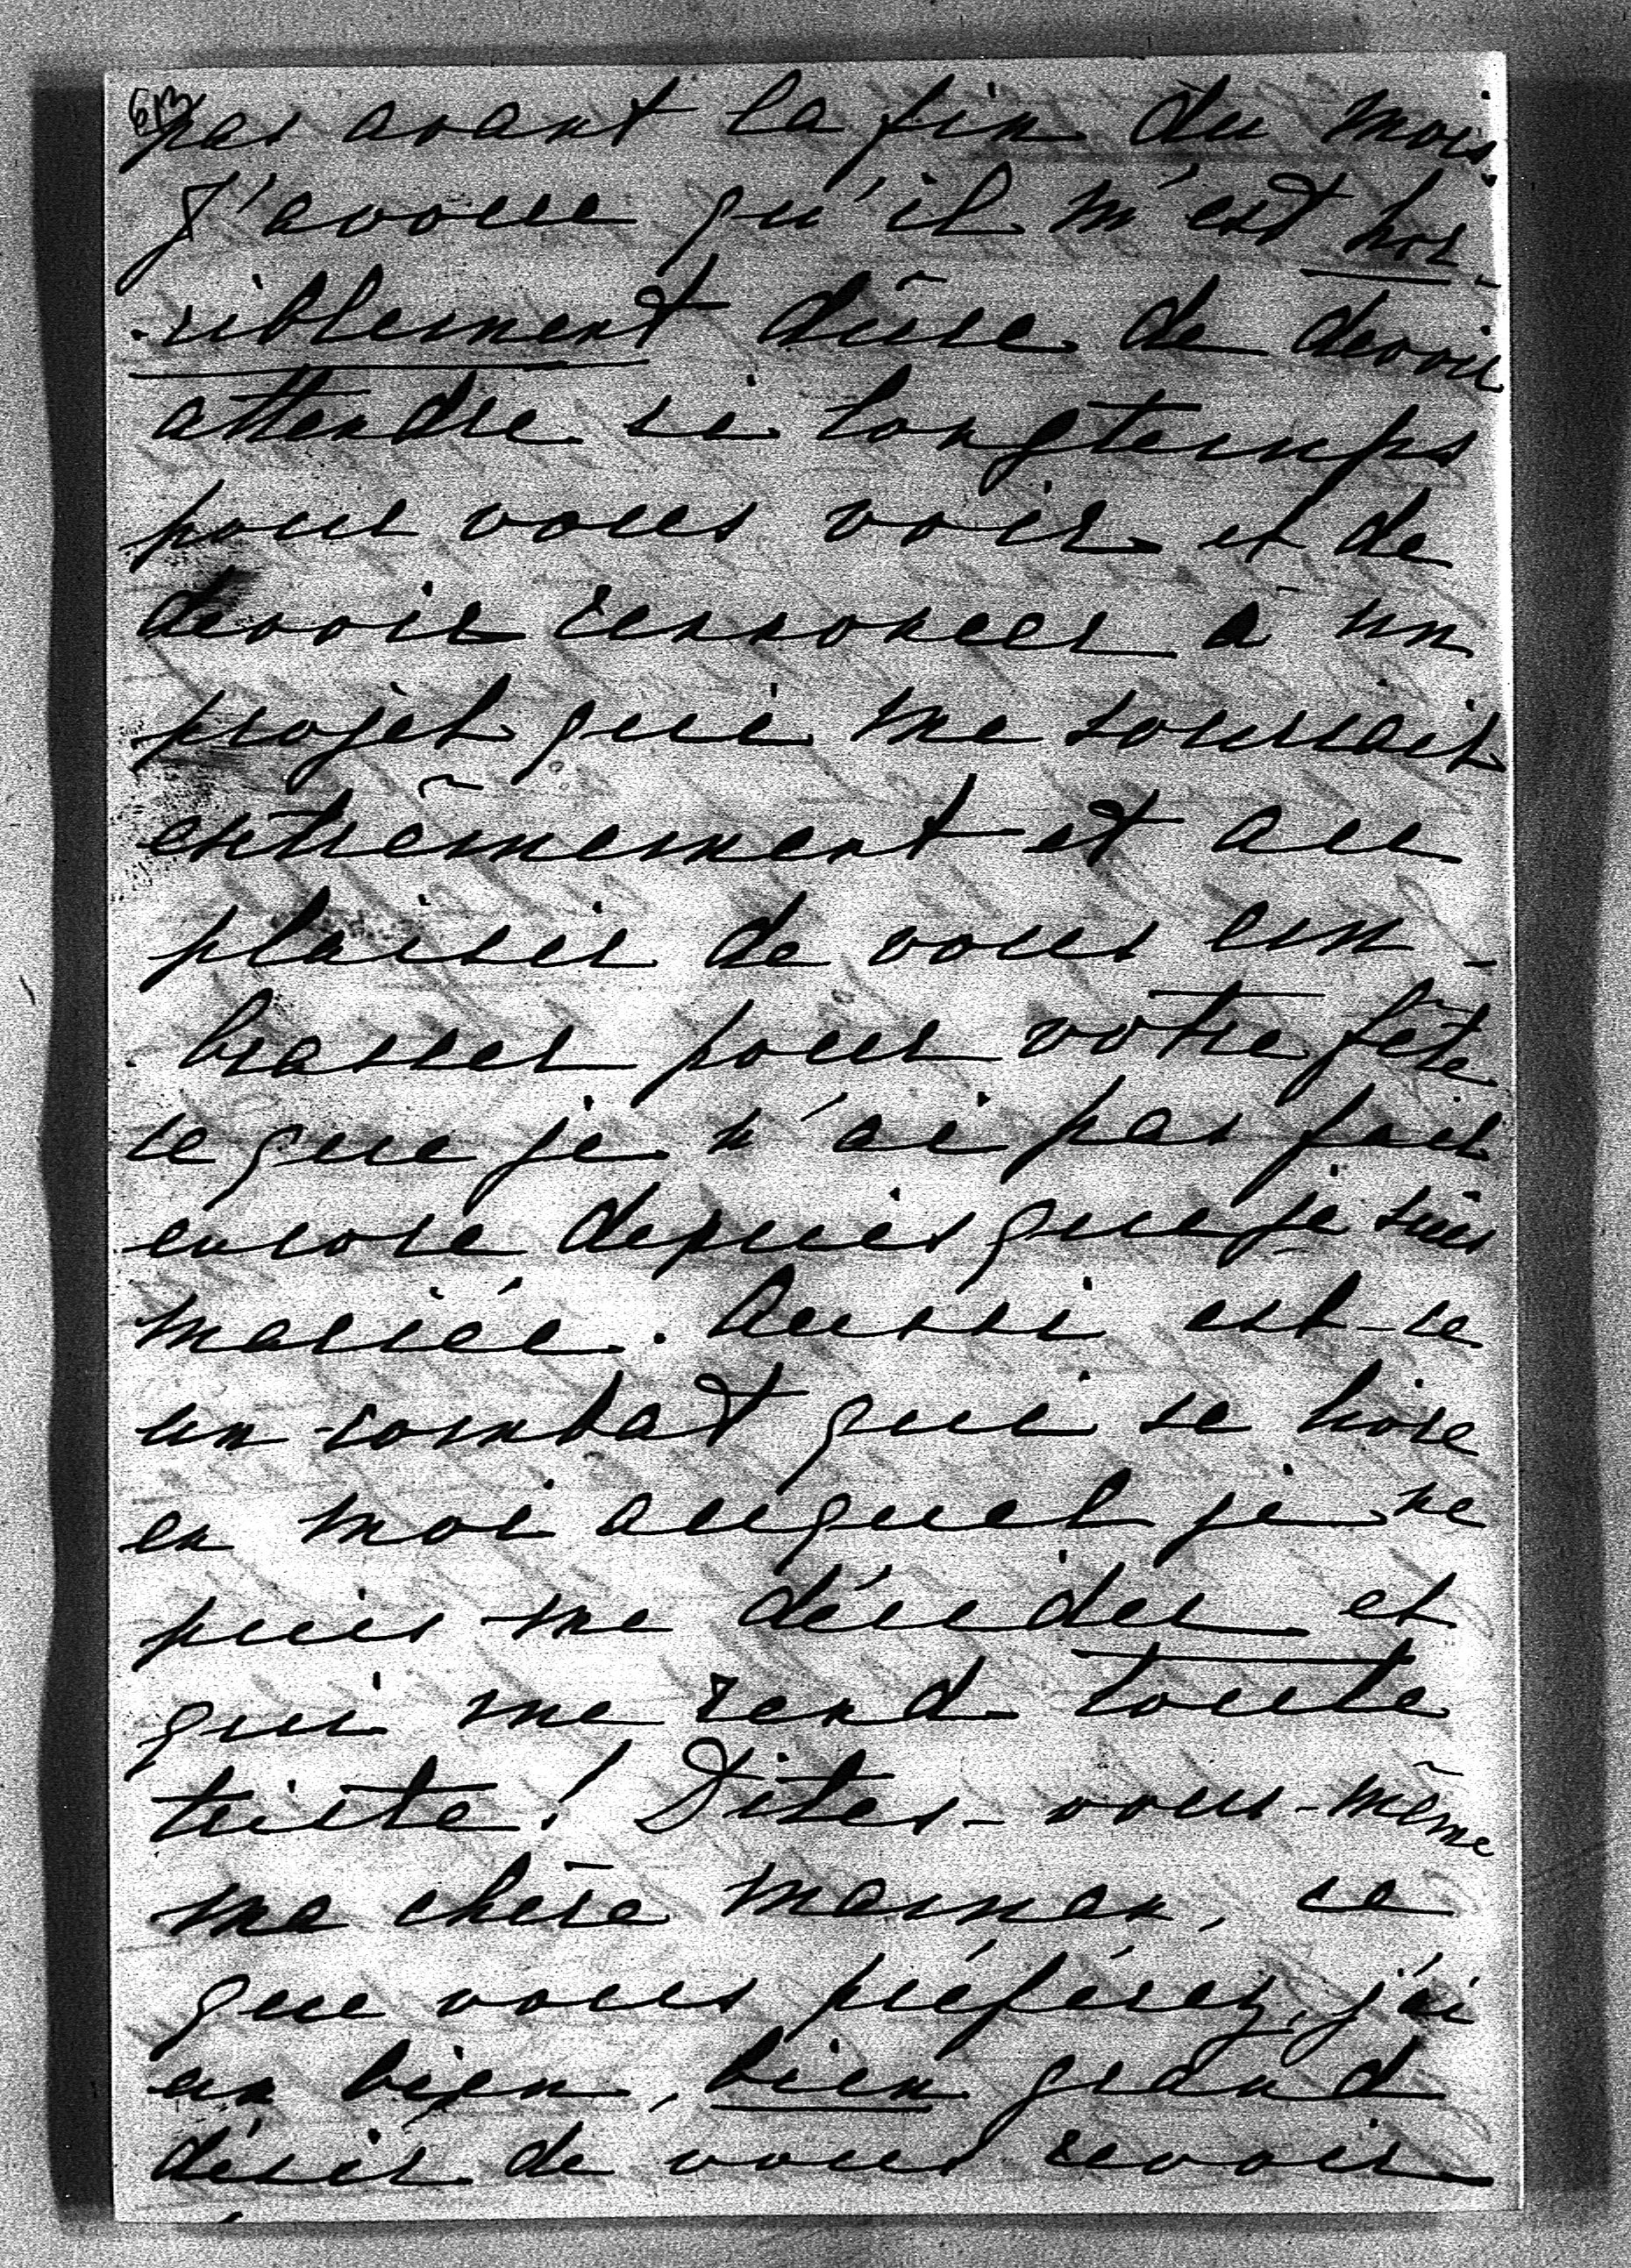 613
pas avant la fin du mois.
J'avoue qu'il m'est hor-
-riblement dûre de devoir
attendre si longtemps
pour vous voir et de
devoir renoncer à un
projet qui me souriait
extrêmement et au
plaisir de vous em-
brasser pour votre fête
ce que je n'ai pas fait
encore depuis que je suis
mariée. Aussi est-ce
un combat qui se livre
en moi auquel je ne
puis me décider et
qui me rend toute
triste! Dites-vous-même
ma chère maman, ce
que vous préférez, j'ai
un bien, bien grand
désir de vous revoir